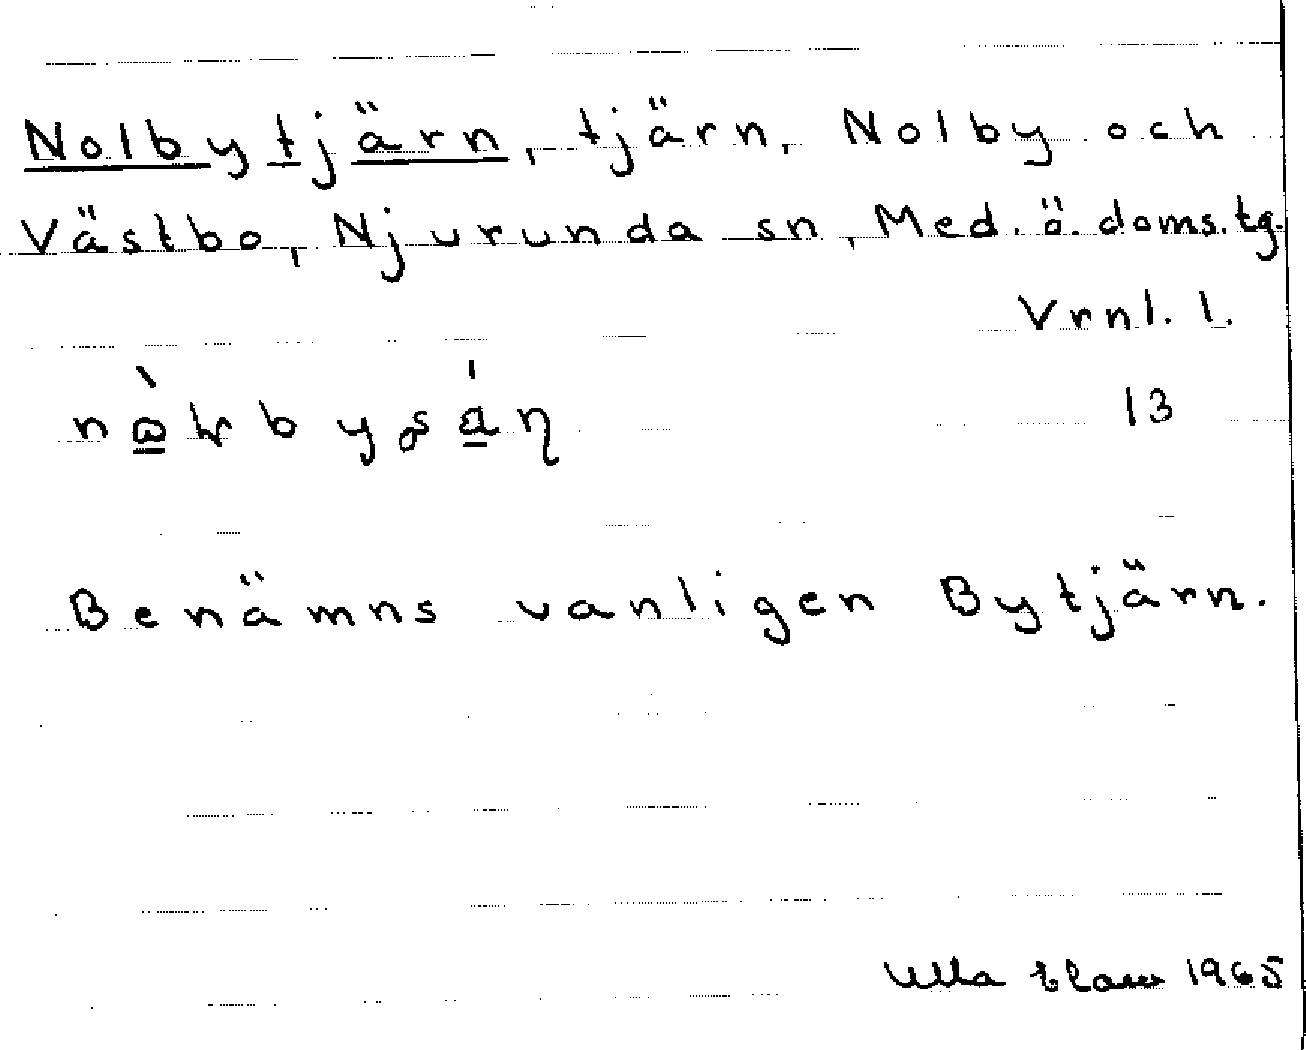 Nolbytjärn, tjärn, Nolby och
Västbo, Njurunda sn, Med. ö. doms.tg.
Vrnl. l.
13
Benämns vanligen Bytjärn.
Ulla 1965